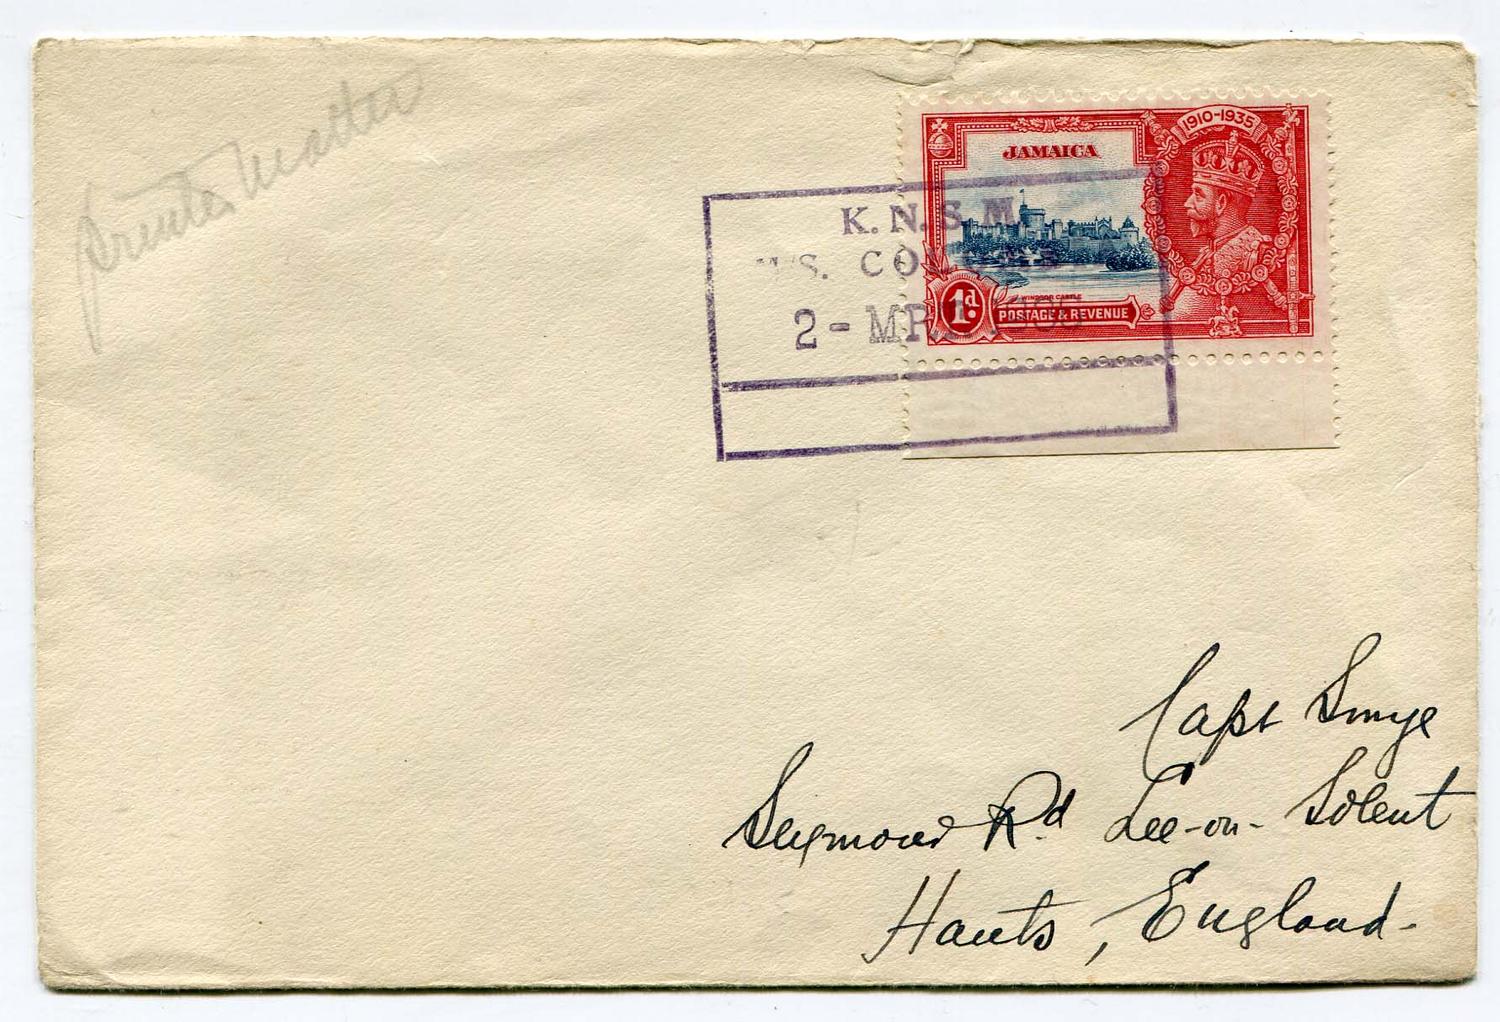 Printed Matter
1910-1935
JAMAICA
K. N. S. M
S. CO
2 - MR
WINDSOR CASTLE
1d.
POSTAGE & REVENUE
Capt Smye
Seymour Rd Lee-on-Solent
Hants, England.